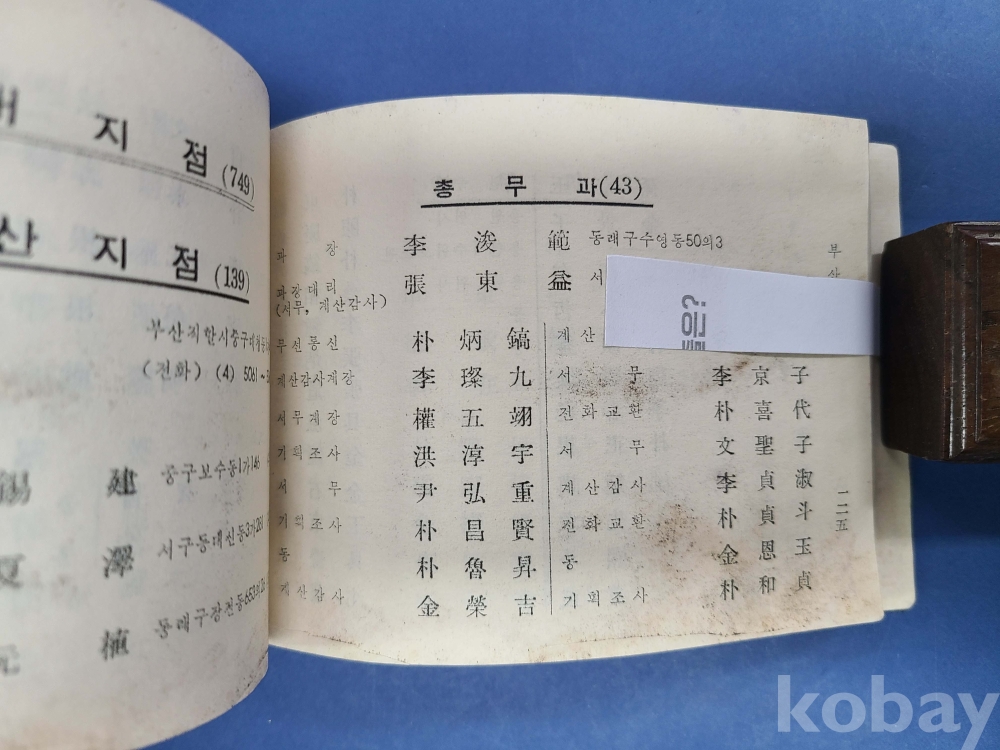 지 점 (749)
산 지 점 (139)
부산직할시중구대청동
(전화) (4) 5061~
錫 建 중구보수동1가146
夏 澤 서구동대신동3가281
元 植 동래구장전동
총 무 과 (43)
과 장 李 浚 範 동래구수영동50의3
과장대리 張 東 益 서
(서무, 계산감사)
무선통신 朴 炳 鎬 계산
계산감사계장 李 璨 九 서 무 李 京 子
서무계장 權 五 翊 전화교환 朴 喜 代
기획조사 洪 淳 宇 서 무 文 聖 子
서 무 尹 弘 重 계산감사 李 貞 淑
기획조사 朴 昌 賢 전화교환 朴 貞 斗
동 朴 魯 昇 동 金 恩 玉
계산감사 金 榮 吉 기획조사 朴 和 貞
부산
一二五
kobay